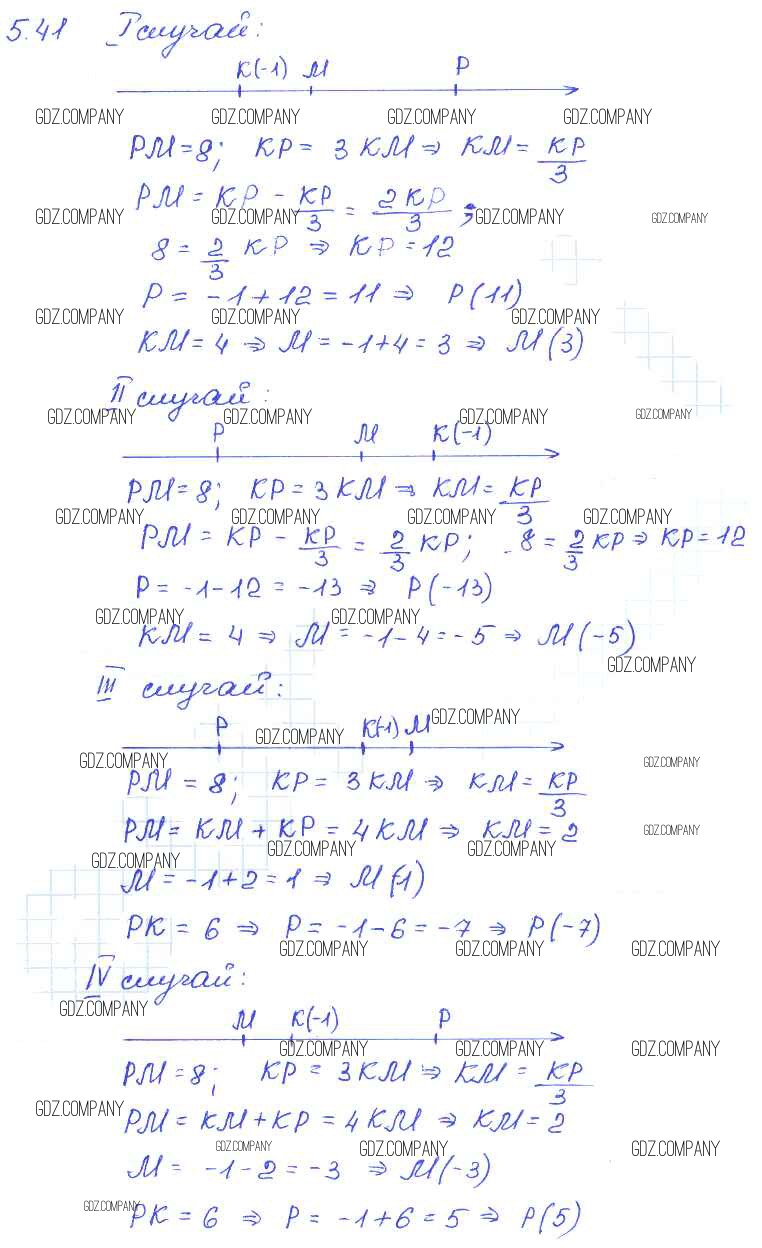 5.41 I случай:
K(-1) M P
GDZ.COMPANY GDZ.COMPANY GDZ.COMPANY GDZ.COMPANY
PM=8; KP= 3 KM ⇒ KM= KP/3
PM= KP - KP/3 = 2KP/3 ;
GDZ.COMPANY GDZ.COMPANY GDZ.COMPANY GDZ.COMPANY
8 = 2/3 KP ⇒ KP=12
P = -1+12 =11 ⇒ P(11)
GDZ.COMPANY GDZ.COMPANY GDZ.COMPANY
KM= 4 ⇒ M = -1+4 = 3 ⇒ M(3)
II случай:
GDZ.COMPANY GDZ.COMPANY GDZ.COMPANY GDZ.COMPANY
P M K(-1)
PM=8; KP=3KM ⇒ KM= KP/3
GDZ.COMPANY GDZ.COMPANY GDZ.COMPANY GDZ.COMPANY
PM= KP - KP/3 = 2/3 KP; 8= 2/3 KP ⇒ KP=12
P= -1-12 = -13 ⇒ P(-13)
GDZ.COMPANY GDZ.COMPANY
KM= 4 ⇒ M = -1-4=-5 ⇒ M(-5)
GDZ.COMPANY
III случай:
GDZ.COMPANY
P K(-1) M
GDZ.COMPANY
GDZ.COMPANY GDZ.COMPANY
PM = 8; KP= 3KM ⇒ KM= KP/3
PM= KM + KP = 4KM ⇒ KM=2
GDZ.COMPANY
GDZ.COMPANY GDZ.COMPANY GDZ.COMPANY
M= -1+2=1 ⇒ M(1)
PK = 6 ⇒ P= -1-6 = -7 ⇒ P(-7)
GDZ.COMPANY GDZ.COMPANY GDZ.COMPANY
IV случай:
GDZ.COMPANY
M K(-1) P
GDZ.COMPANY GDZ.COMPANY GDZ.COMPANY
PM=8; KP = 3KM ⇒ KM= KP/3
GDZ.COMPANY
PM= KM+KP = 4KM ⇒ KM=2
GDZ.COMPANY GDZ.COMPANY GDZ.COMPANY
M= -1-2=-3 ⇒ M(-3)
GDZ.COMPANY
PK=6 ⇒ P= -1+6=5 ⇒ P(5)